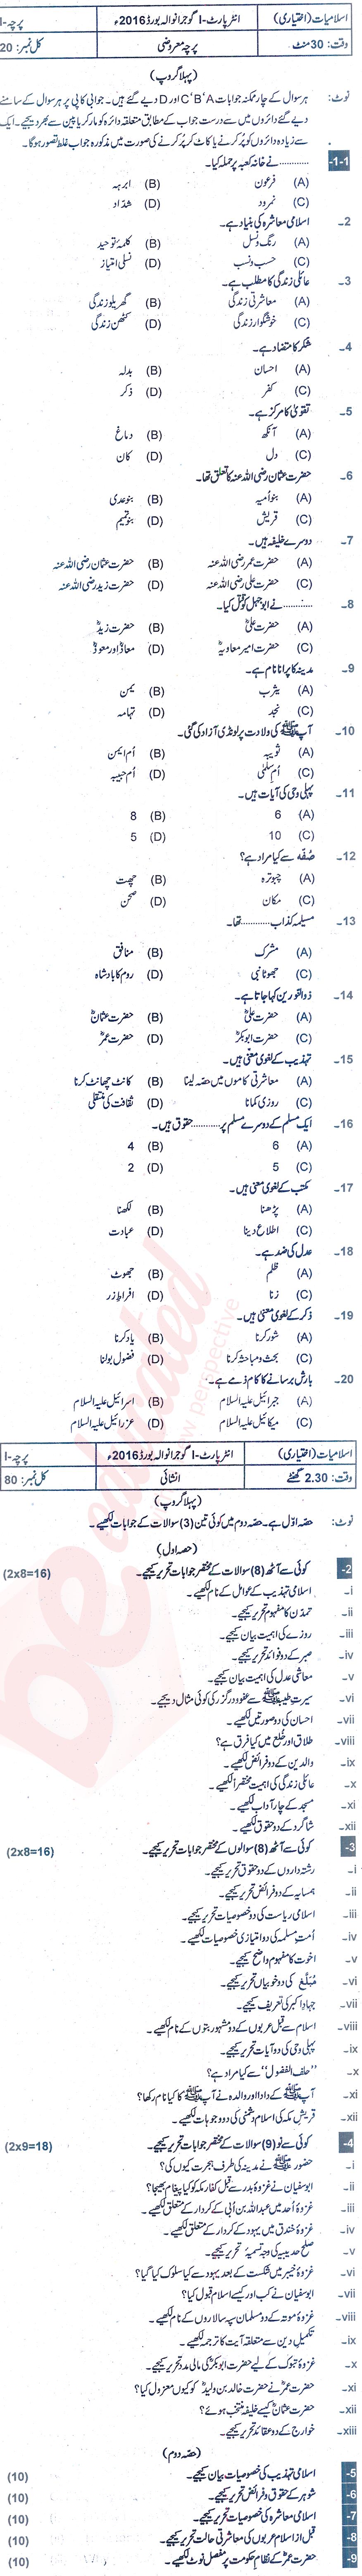 اسلامیات (اختیاری) انٹر پارٹ-I گوجرانوالہ بورڈ 2016ء پرچہ-I
وقت: 30 منٹ پرچہ معروضی کل نمبر: 20
(پہلا گروپ)
نوٹ: ہر سوال کے چار ممکنہ جوابات A‘B‘C اور D دیے گئے ہیں۔ جوابی کاپی پر ہر سوال کے سامنے
دیے گئے دائروں میں سے درست جواب کے مطابق متعلقہ دائرہ کو مارکر یا پین سے بھر دیجیے۔ ایک
سے زیادہ دائروں کو پُر کرنے یا کاٹ کر پُر کرنے کی صورت میں مذکورہ جواب غلط تصور ہوگا۔
1-1- ............ نے خانہ کعبہ پر حملہ کیا۔
(A) فرعون (B) ابرہہ
(C) نمرود (D) شداد
2- اسلامی معاشرہ کی بنیاد ہے۔
(A) رنگ و نسل (B) کلمۂ توحید
(C) حسب و نسب (D) نسلی امتیاز
3- عائلی زندگی کا مطلب ہے۔
(A) معاشرتی زندگی (B) گھریلو زندگی
(C) خوشگوار زندگی (D) کٹھن زندگی
4- شکر کا متضاد ہے۔
(A) احسان (B) بدلہ
(C) کفر (D) ذکر
5- تقویٰ کا مرکز ہے۔
(A) آنکھ (B) دماغ
(C) دل (D) کان
6- حضرت عثمان رضی اللہ عنہ کا تعلق تھا۔
(A) بنو اُمیہ (B) بنو عدی
(C) قریش (D) بنو تمیم
7- دوسرے خلیفہ ہیں۔
(A) حضرت عمر رضی اللہ عنہ (B) حضرت عثمان رضی اللہ عنہ
(C) حضرت علی رضی اللہ عنہ (D) حضرت زید رضی اللہ عنہ
8- ............ نے ابوجہل کو قتل کیا۔
(A) حضرت علیؓ (B) حضرت زیدؓ
(C) حضرت امیر معاویہؓ (D) معاذؓ اور معوذؓ
9- مدینہ کا پرانا نام ہے۔
(A) یثرب (B) یمن
(C) نجد (D) تہامہ
10- آپ ﷺ کی ولادت پر لونڈی آزاد کی گئی۔
(A) ثویبہ (B) اُم ایمن
(C) اُم سلمٰی (D) اُم حبیبہ
11- پہلی وحی کی آیات ہیں۔
(A) 6 (B) 8
(C) 10 (D) 5
12- صُفّہ سے کیا مراد ہے؟
(A) چبوترہ (B) چھت
(C) مکان (D) صحن
13- مسیلمہ کذاب ............ تھا۔
(A) مشرک (B) منافق
(C) جھوٹا نبی (D) روم کا بادشاہ
14- ذوالنورین کہا جاتا ہے۔
(A) حضرت علیؓ (B) حضرت عثمانؓ
(C) حضرت ابوبکرؓ (D) حضرت عمرؓ
15- تہذیب کے لغوی معنی ہیں۔
(A) معاشرتی کاموں میں حصہ لینا (B) کانٹ چھانٹ کرنا
(C) روزی کمانا (D) ثقافت کی منتقلی
16- ایک مسلم کے دوسرے مسلم پر ............ حقوق ہیں۔
(A) 6 (B) 4
(C) 5 (D) 2
17- کتب کے لغوی معنی ہیں۔
(A) پڑھنا (B) لکھنا
(C) اطلاع دینا (D) عبادت
18- عدل کی ضد ہے۔
(A) ظلم (B) جھوٹ
(C) زنا (D) افراطِ زر
19- ذکر کے لغوی معنی ہیں۔
(A) شور کرنا (B) یاد کرنا
(C) بحث و مباحثہ کرنا (D) فضول بولنا
20- بارش برسانے کا کام ذمے ہے۔
(A) جبرائیل علیہ السلام (B) اسرافیل علیہ السلام
(C) میکائیل علیہ السلام (D) عزرائیل علیہ السلام
اسلامیات (اختیاری) انٹر پارٹ-I گوجرانوالہ بورڈ 2016ء پرچہ-I
وقت: 2.30 گھنٹے انشائی کل نمبر: 80
(پہلا گروپ)
نوٹ: حصہ اوّل ہے۔ حصہ دوم میں کوئی تین (3) سوالات کے جوابات لکھیے۔
(حصہ اول)
2- کوئی سے آٹھ (8) سوالات کے مختصر جوابات تحریر کیجیے۔ (2x8=16)
i- اسلامی تہذیب کے عوامل کے نام لکھیے۔
ii- تمدن کا مفہوم تحریر کیجیے۔
iii- روزے کی اہمیت بیان کیجیے۔
iv- صبر کے دو فوائد تحریر کیجیے۔
v- معاشی عدل کی اہمیت بیان کیجیے۔
vi- سیرت طیبہ ﷺ سے عفوودرگزر کی کوئی مثال دیجیے۔
vii- احسان کی دو صورتیں لکھیے۔
viii- طلاق اور خلع میں کیا فرق ہے؟
ix- والدین کے دو فرائض لکھیے۔
x- عائلی زندگی کی اہمیت مختصراً لکھیے۔
xi- مسجد کے چار آداب لکھیے۔
xii- شاگرد کے دو حقوق لکھیے۔
3- کوئی سے آٹھ (8) سوالوں کے مختصر جوابات تحریر کیجیے۔ (2x8=16)
i- رشتہ داروں کے دو حقوق تحریر کیجیے۔
ii- ہمسایہ کے دو فرائض تحریر کیجیے۔
iii- اسلامی ریاست کی دو خصوصیات تحریر کیجیے۔
iv- اُمتِ مسلمہ کی دو امتیازی خصوصیات لکھیے۔
v- اخوت کا مفہوم واضح کیجیے۔
vi- مُبلّغ کی دو خوبیاں تحریر کیجیے۔
vii- جہادِ اکبر کی تعریف کیجیے۔
viii- اسلام سے قبل عربوں کے دو مشہور بتوں کے نام لکھیے۔
ix- پہلی وحی کی دو آیات تحریر کیجیے۔
x- ”حلف الفضول“ سے کیا مراد ہے؟
xi- آپ ﷺ کے دادا اور والدہ نے آپ ﷺ کا کیا نام رکھا؟
xii- قریشِ مکہ کی اسلام دشمنی کی دو وجوہات لکھیے۔
4- کوئی سے نو (9) سوالات کے مختصر جوابات تحریر کیجیے۔ (2x9=18)
i- حضور ﷺ نے مدینہ کی طرف ہجرت کیوں کی؟
ii- ابوسفیان نے غزوہ بدر سے قبل کفارِ مکہ کو کیا پیغام بھیجا؟
iii- غزوہ اُحد میں عبداللہ بن اُبی کے کردار کے متعلق لکھیے۔
iv- غزوہ خندق میں یہود کے کردار کے متعلق لکھیے۔
v- صلح حدیبیہ کی وجہ تسمیہ تحریر کیجیے۔
vi- غزوہ خیبر میں شکست کے بعد یہود سے کیا سلوک کیا گیا؟
vii- ابوسفیان نے کب اور کیسے اسلام قبول کیا؟
viii- غزوہ موتہ کے دو مسلمان سپہ سالاروں کے نام لکھیے۔
ix- تکمیلِ دین سے متعلقہ آیت کا ترجمہ لکھیے۔
x- غزوہ تبوک کے لیے حضرت ابوبکرؓ کی مالی مدد تحریر کیجیے۔
xi- حضرت عمرؓ نے حضرت خالد بن ولیدؓ کو کیوں معزول کیا؟
xii- حضرت عثمانؓ کیسے خلیفہ منتخب ہوئے؟
xiii- خوارج کے دو عقائد تحریر کیجیے۔
(حصہ دوم)
5- اسلامی تہذیب کی خصوصیات بیان کیجیے۔ (10)
6- شوہر کے حقوق و فرائض تحریر کیجیے۔ (10)
7- اسلامی معاشرہ کی خصوصیات تحریر کیجیے۔ (10)
8- قبل از اسلام عربوں کی معاشرتی حالت تحریر کیجیے۔ (10)
9- حضرت عمرؓ کے نظامِ حکومت پر مفصل نوٹ لکھیے۔ (10)
educated
perspective